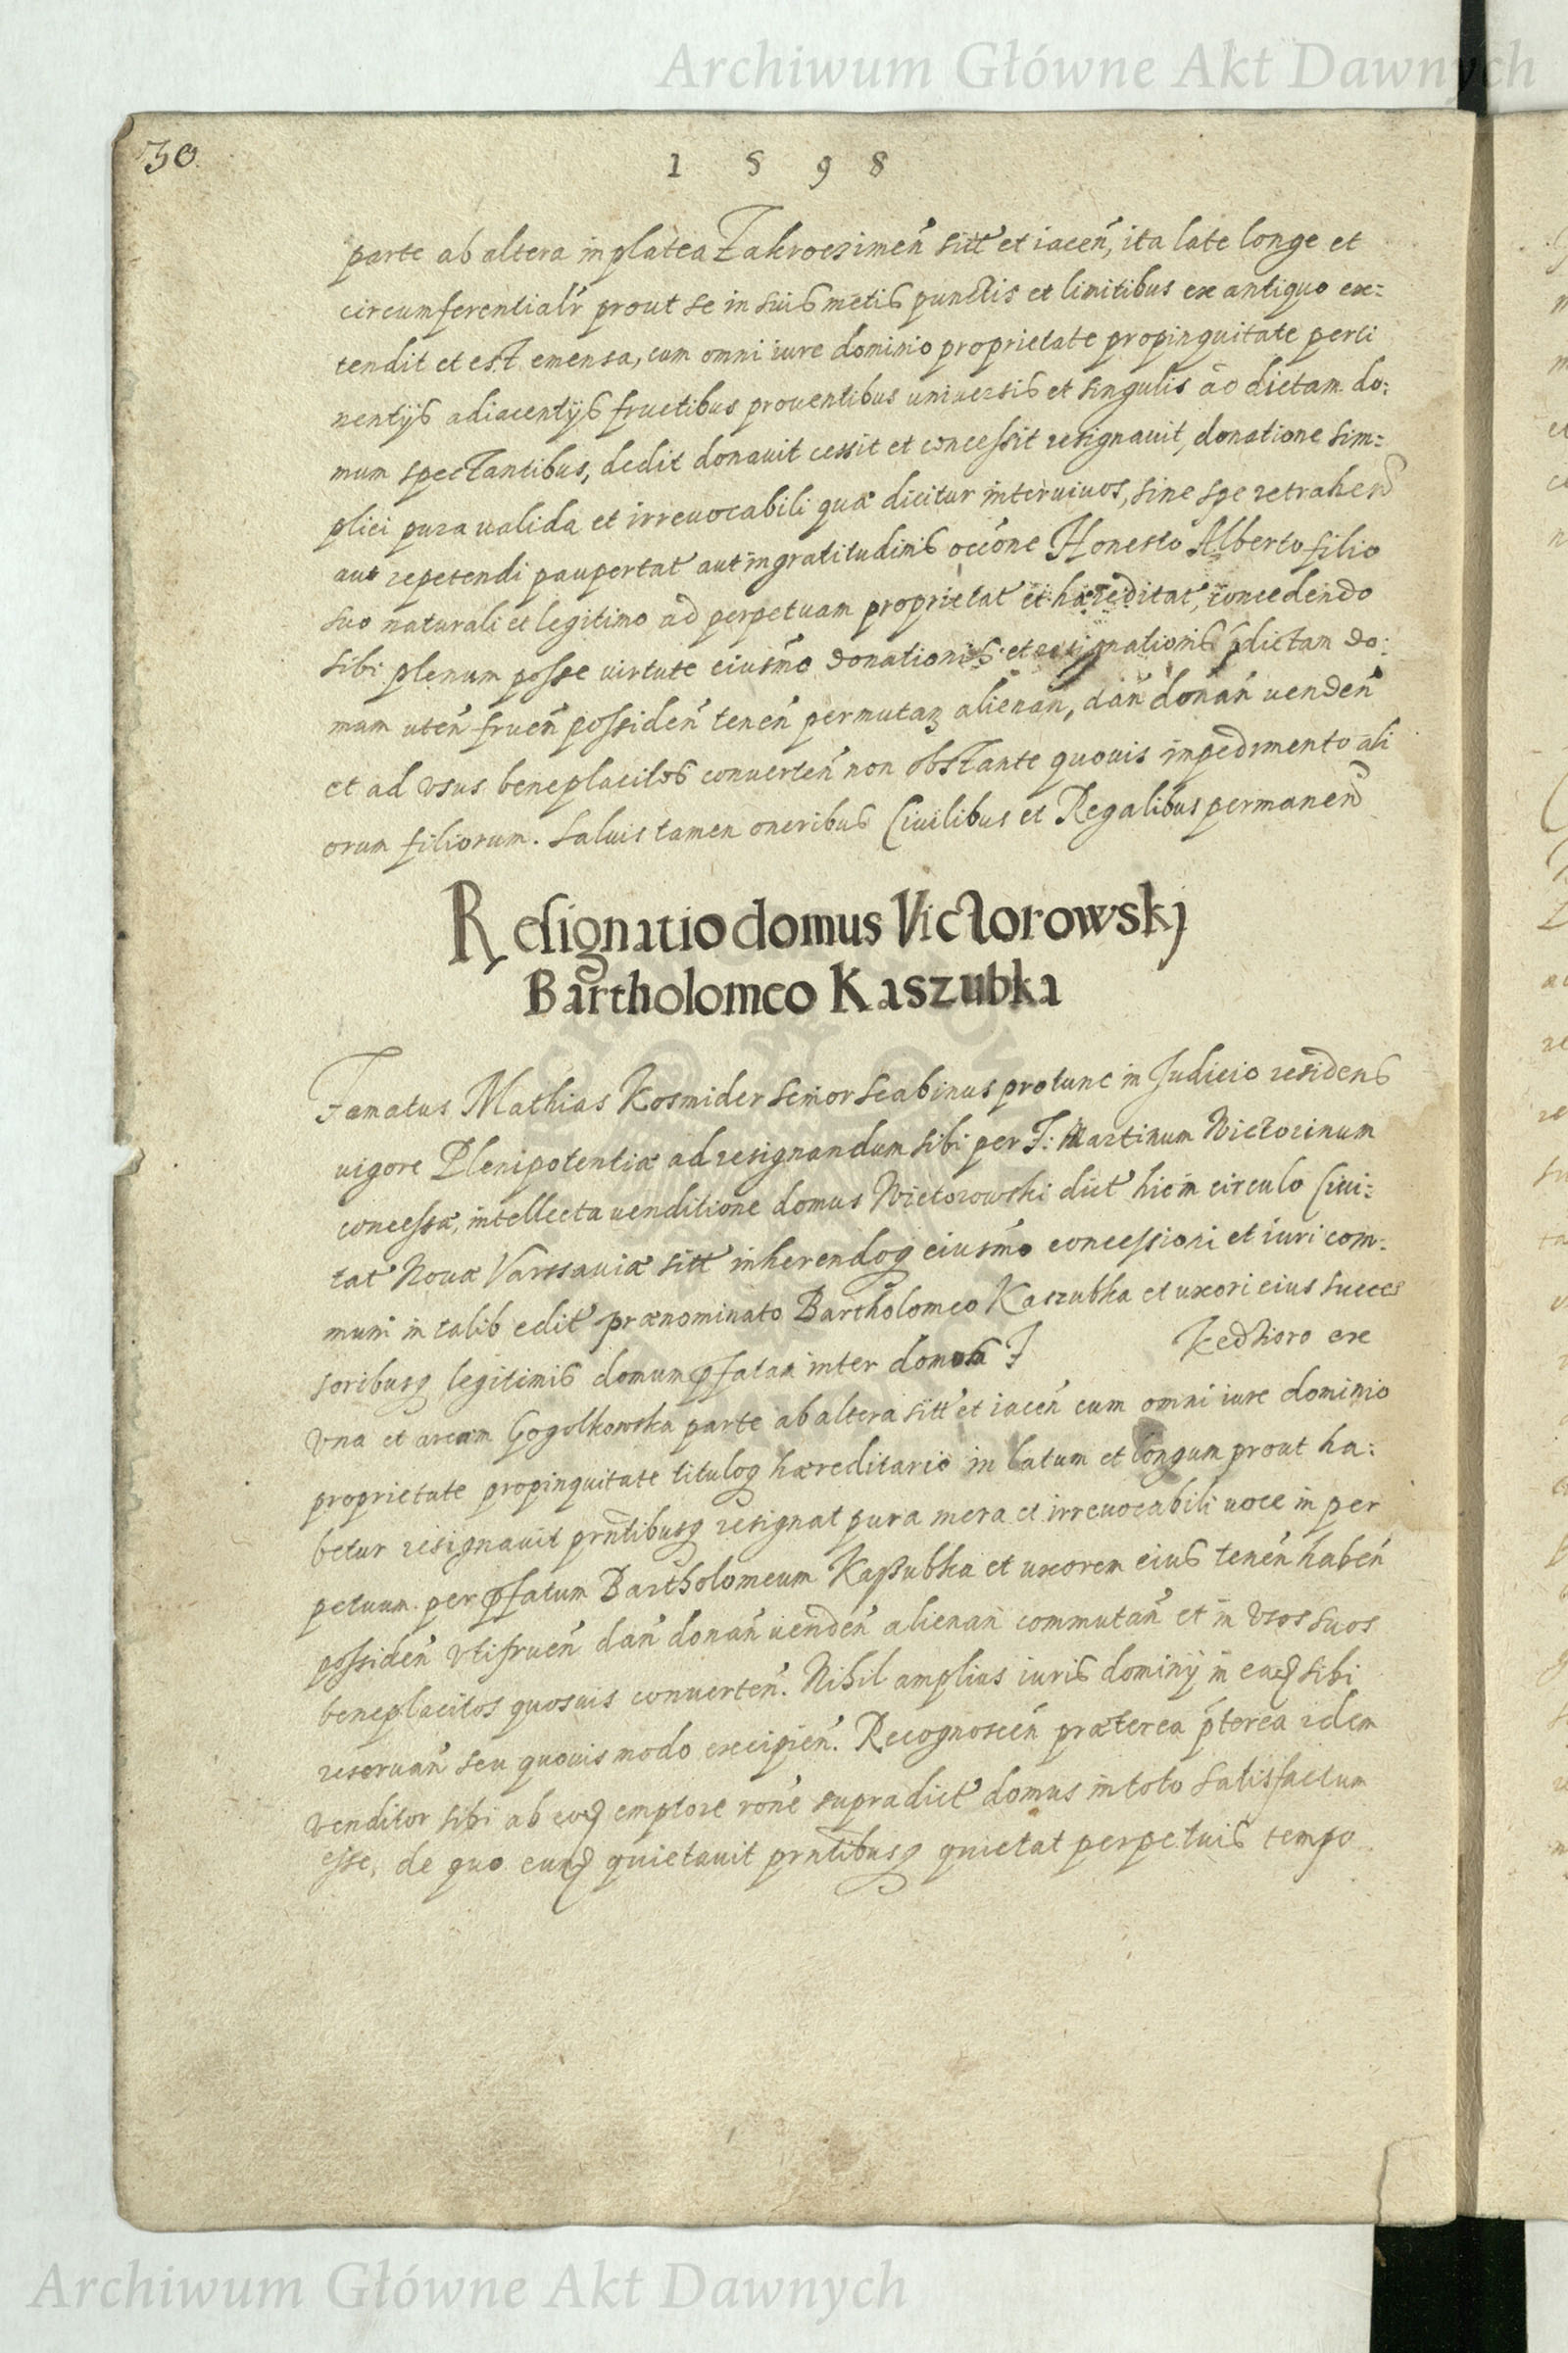 Archiwum Główne Akt Dawnych
30.
1 5 9 8
parte ab altera in platea Zakroczimeñ sitt et iaceñ, ita late longe et
circumferentialr prout se in suis metis punctis et limitibus ex antiquo ex=
tendit et est emensa, cum omni iure dominio proprietate propinquitate perti
nentijs adiacentijs fructibus prouentibus uniuersis et singulis ad dictam do:
mum spectantibus, dedit donauit cessit et concessit resignauit, donatione sim=
plici pura ualida et irreuocabili quæ dicitur inter uiuos, sine spe retrahend
aut repetendi paupertat aut ingratitudinis occone Honesto Alberto filio
suo naturali et legitimo ad perpetuam proprietat et hæreditat, concedendo
sibi plenum posse uirtute eiusmo donationis et resignationis pdictam do:
mum uteñ frueñ possideñ teneñ permutañ alienañ, dañ donañ uendeñ
et ad usus beneplacitos conuerteñ non obstante quouis impedimento ali
orum filiorum. Saluis tamen oneribus Ciuilibus et Regalibus permanend
Resignatio domus Victorowskj
Bartholomeo Kaszubka
Famatus Mathias Kosmider senior scabinus protunc in Judicio residens
uigore Plenipotentiæ ad resignandum sibi per F: Martinum Wictorinum
concessæ, intellecta uenditione domus Wictorowski dict hic in circulo Ciui=
tat Nouæ Varssauiæ sitt inherendoq eiusmo concessioni et iuri com:
muni in talib edit prænominato Bartholomeo Kaszubka et uxori eius succes
soribusq legitimis domum pfatam inter domos F Kedhioro ex
una et aream Gogolkowska parte ab altera sitt et iaceñ cum omni iure dominio
proprietate propinquitate tituloq hæreditario in latum et longum prout ha:
betur resignauit prntibusq resignat pura mera et irreuocabili uoce in per
petuum per pfatum Bartholomeum Kaszubka et uxorem eius teneñ habeñ
possideñ utifrueñ dañ donañ uendeñ alienañ commutañ et in usos suos
beneplacitos quosuis conuerteñ. Nihil amplius iuris dominij in ead sibi
reseruañ seu quouis modo excipieñ. Recognosceñ præterea pterea idem
uenditor sibi ab eod emptore rone supradict domus in toto satisfactum
esse, de quo eund quietauit prntibusq quietat perpetuis tempo
Archiwum Główne Akt Dawnych